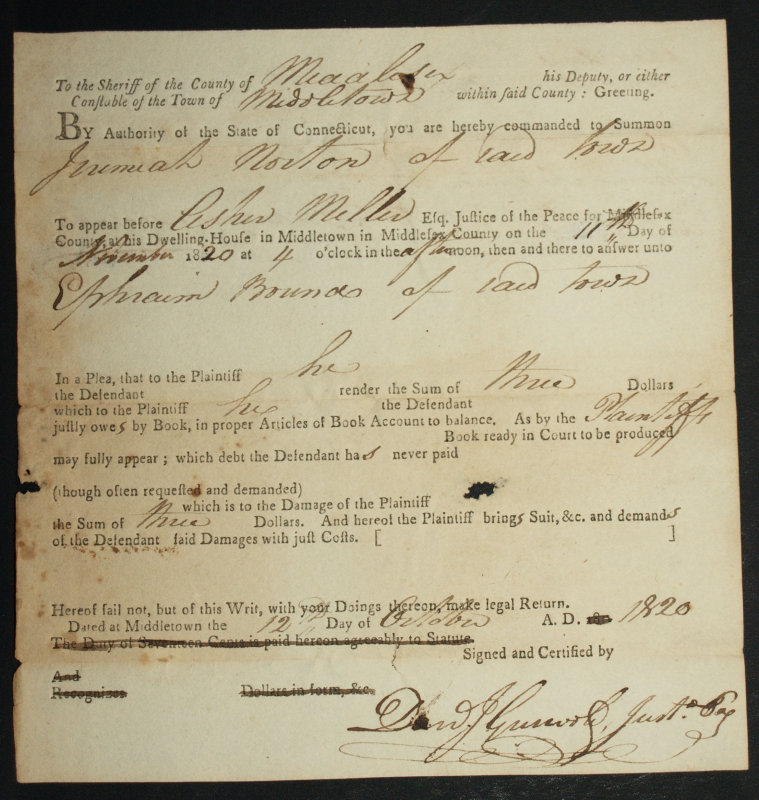 To the Sheriff of the County of Middlesex his Deputy, or either
Conſtable of the Town of Middletown within ſaid County: Greeting.
BY Authority of the State of Connecticut, you are hereby commanded to Summon
Jeremiah Norton of said town
To appear before Asher Miller Eſq. Juſtice of the Peace for Middleſex
County, at his Dwelling-Houſe in Middletown in Middleſex County on the 11th Day of
November 1820 at 4 o'clock in the afternoon, then and there to anſwer unto
Ephraim Bound of said town
In a Plea, that to the Plaintiff he
the Defendant render the Sum of three Dollars
which to the Plaintiff he the Defendant
juſtly owes by Book, in proper Articles of Book Account to balance. As by the Plaintiffs
Book ready in Court to be produced
may fully appear; which debt the Defendant has never paid
(though often requeſted and demanded)
which is to the Damage of the Plaintiff
the Sum of three Dollars. And hereof the Plaintiff brings Suit, &c. and demands
of the Defendant ſaid Damages with juſt Coſts. [ ]
Hereof fail not, but of this Writ, with your Doings thereon, make legal Return.
Dated at Middletown the 12th Day of October A. D. 1820
The Duty of Seventeen Cents is paid hereon agreeably to Statute.
Signed and Certified by
And
Recognizes Dollars in form, &c.
Just. Pag